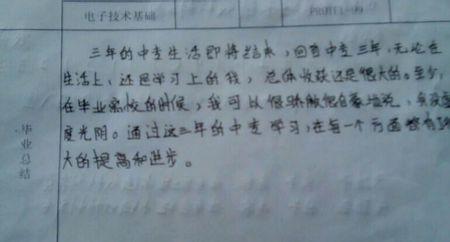 电子技术基础 PROTEL-99
三年的中专生活即将结束，回首中专三年，无论在
生活上，还是学习上的我，总体收获还是很大的。至少，
在毕业离校的时候，我可以很骄傲很自豪地说，我没虚
度光阴。通过这三年的中专学习，在每一个方面都有
大的提高和进步。
毕业总结